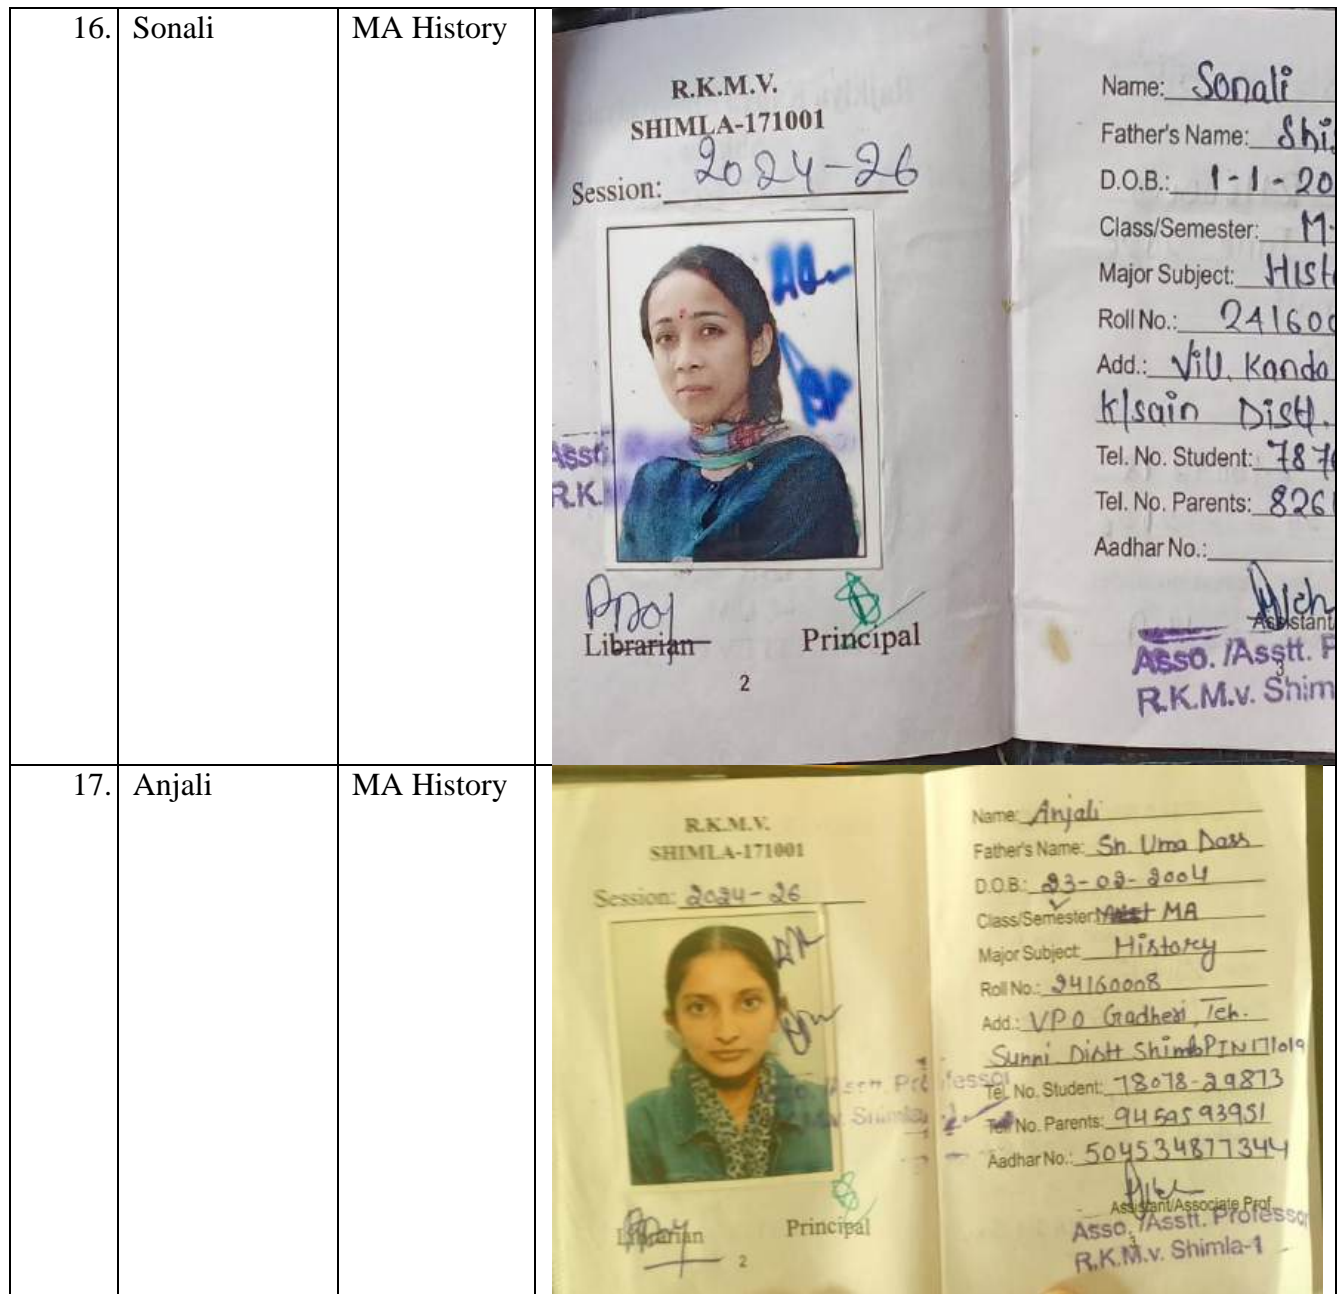 16. Sonali MA History
R.K.M.V.
SHIMLA-171001
Session: 2024-26
Librarian Principal
2
Name: Sonali
Father's Name: Shi
D.O.B.: 1-1-20
Class/Semester: M.
Major Subject: Hist
Roll No.: 241600
Add.: Vill. Kanda
K/sain Distt.
Tel. No. Student: 787
Tel. No. Parents: 826
Aadhar No.:
Assistant
Asso. /Asstt. P
3
R.K.M.v. Shim
17. Anjali MA History
R.K.M.V.
SHIMLA-171001
Session: 2024-26
Librarian Principal
2
Name: Anjali
Father's Name: Sh. Uma Dass
D.O.B.: 23-02-2004
Class/Semester MA
Major Subject: History
Roll No.: 24160008
Add.: VPO Gadheri, Teh.
Sunni Distt Shimla PIN 171019
Tel. No. Student: 78078-29873
Tel. No. Parents: 9459593951
Aadhar No.: 504534877344
Assistant/Associate Prof.
Asso. /Asstt. Professor
3
R.K.M.v. Shimla-1